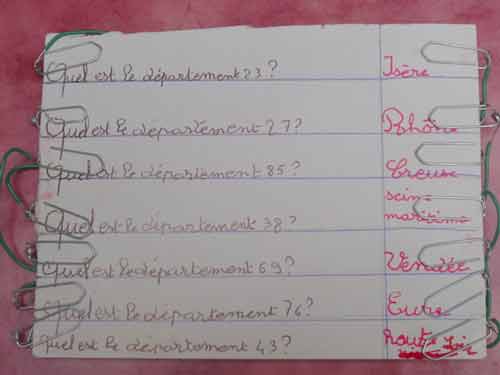 Quel est le département 23? Isère
Quel est le département 27? Rhône
Quel est le département 85? Creuse
sein-
Quel est le département 38? maritime
Quel est le département 69? Vendée
Quel est le département 76? Eure
Quel est le département 43? haute-Loir